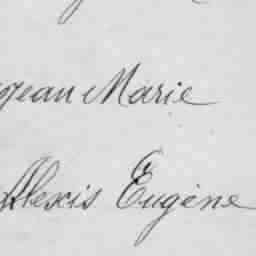 Jean Marie
Alexis Eugène